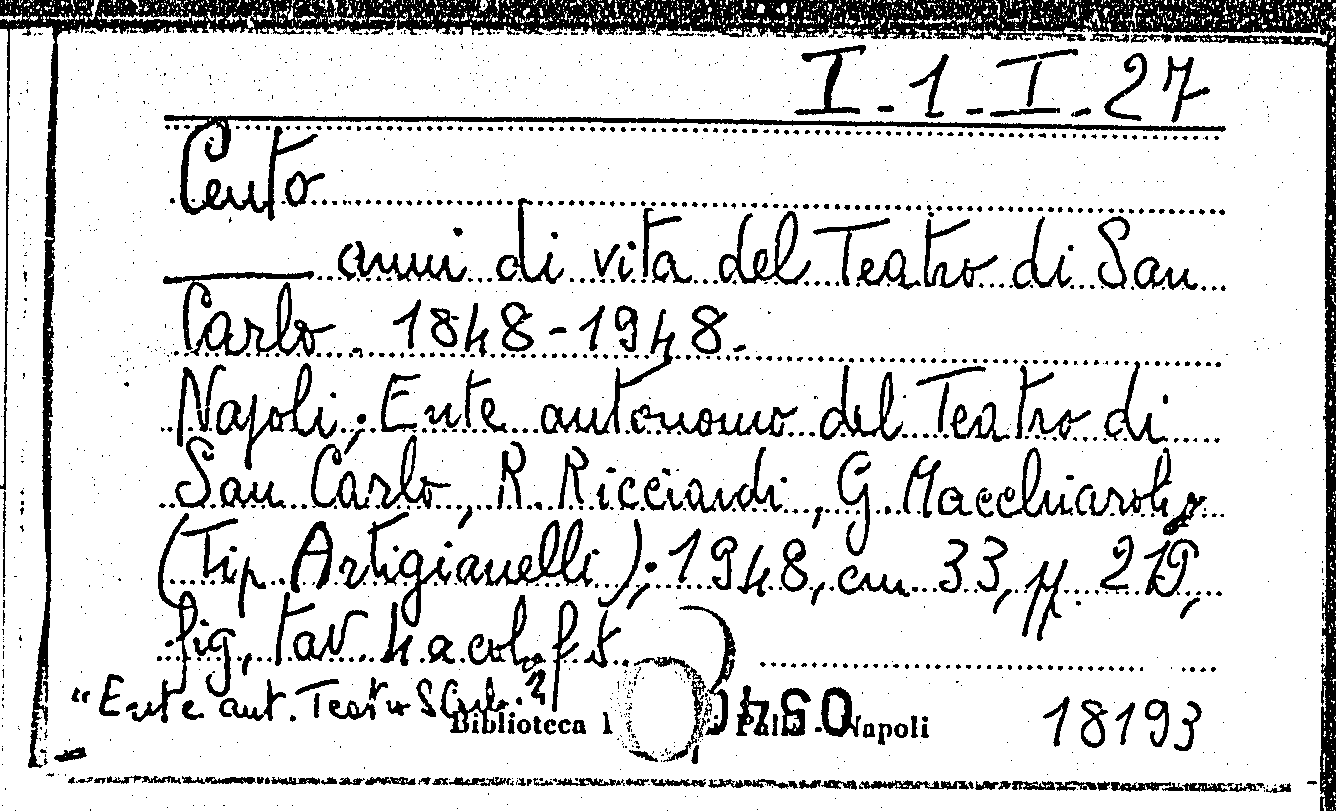 I.1.I.27
Cento
anni di vita del Teatro di San
Carlo. 1848-1948.
Napoli; Ente autonomo del Teatro di
San Carlo, R. Ricciardi, G. Macchiaroli,
(Tip. Artigianelli); 1948, cm 33, pp. 219,
fig, tav. 4 a col. f. t.
"Ente aut. Teatro S. Carlo.
Biblioteca Napoli
18193